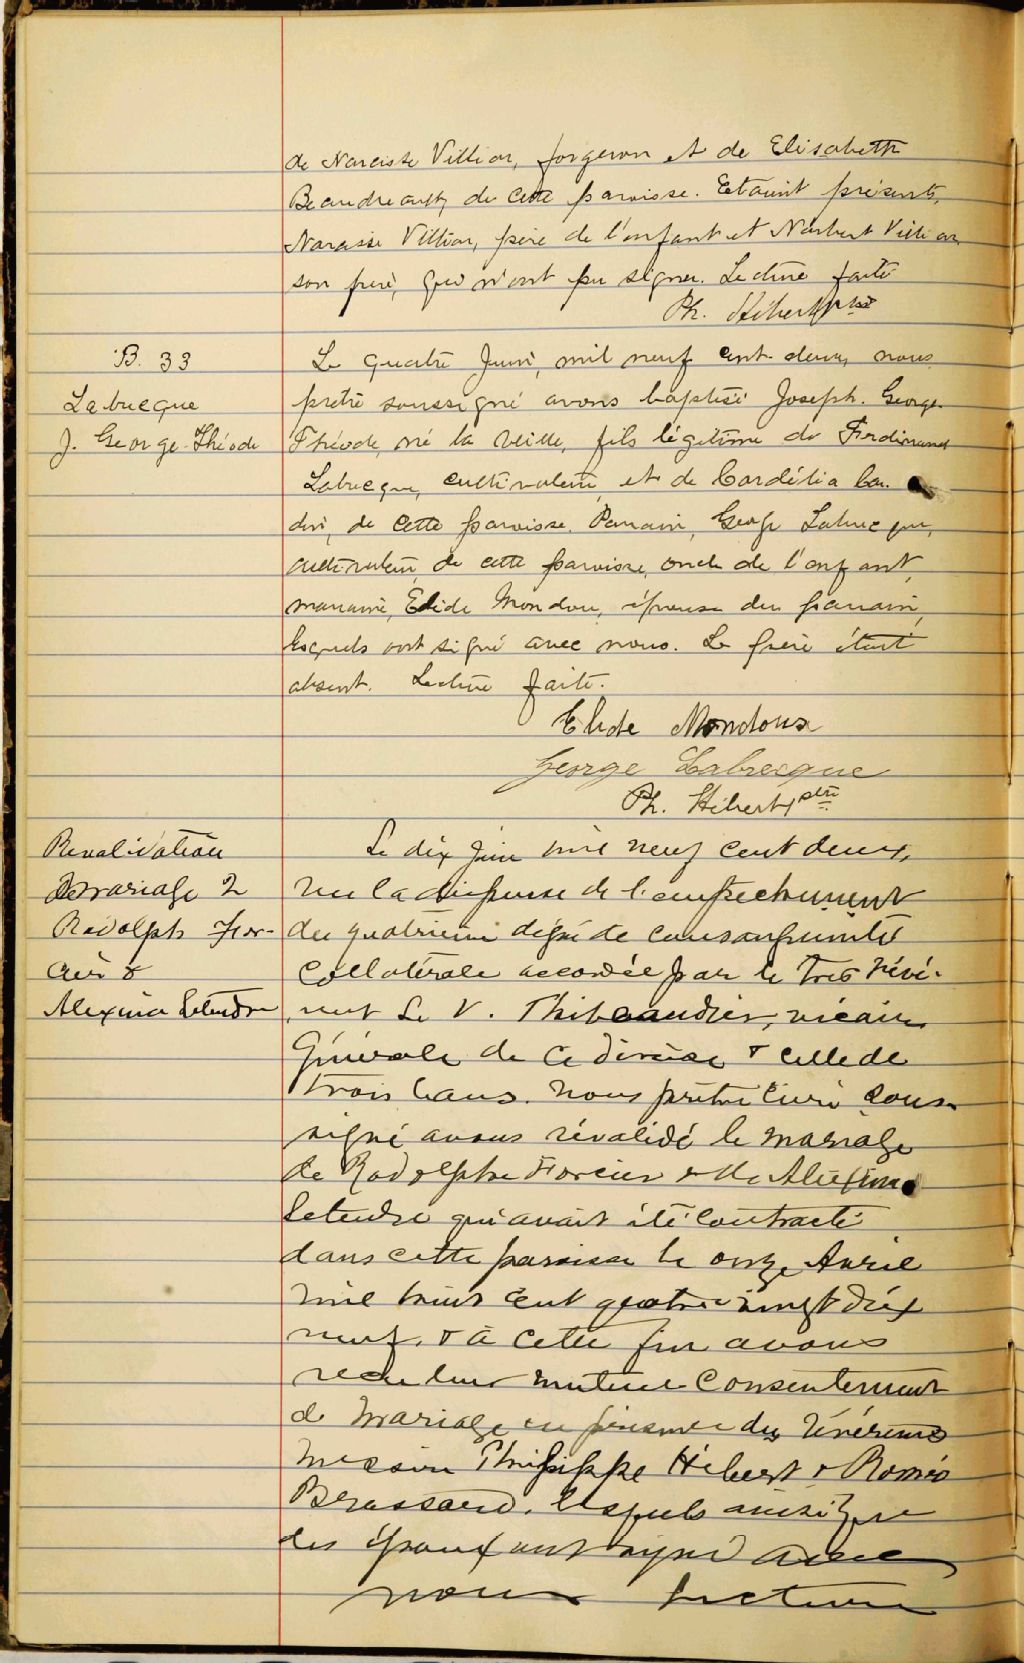 de Narcisse Villiar, forgeron et de Elisabeth
Beaudreault, de cette paroisse. Etaient présents,
Narcisse Villiar, père de l'enfant et Norbert Villiar
son frère, qui n'ont pu signer. Lecture faite
Ph. Hébert ptre
B. 33
Labrecque
J. George-Théode
Le quatre Juin, mil neuf cent-deux, nous
prêtre soussigné avons baptisé Joseph. George-
Théode, né la veille, fils légitime de Ferdinand
Labrecque, cultivateur et de Cordélia Car-
din, de cette paroisse. Parrain, George Labrecque,
cultivateur de cette paroisse, oncle de l'enfant,
marraine, Elide Mondou, épouse du parrain,
lesquels ont signé avec nous. Le père était
absent. Lecture faite.
Elide Mondoux
George Labrecque
Ph. Hébert, ptre
Revalidation
de mariage de
Rodolph For-
cier &
Alexina Letendre
Le dix Juin mil neuf cent deux,
vu la dispense de l'empêchement
du quatrième dégré de consanguinité
collatérale accordée par le très révé-
rent L. V. Thibaudier, vicaire
Générale de ce diocèse & celle de
trois bans. nous prêtre curé sous-
signé avons révalidé le mariage
de Rodolphe Forcier & de Alexina
Letendre qui avait été contracté
dans cette paroisse le onze Avril
mil huit cent quatre vingt dix
neuf, & à cette fin avons
reçu leur mutuel Consentement
de Mariage en présence des révérends
Messire Philippe Hébert & Roméo
Brassard, lesquels ainsi que
les époux ont signé avec
nous lecture